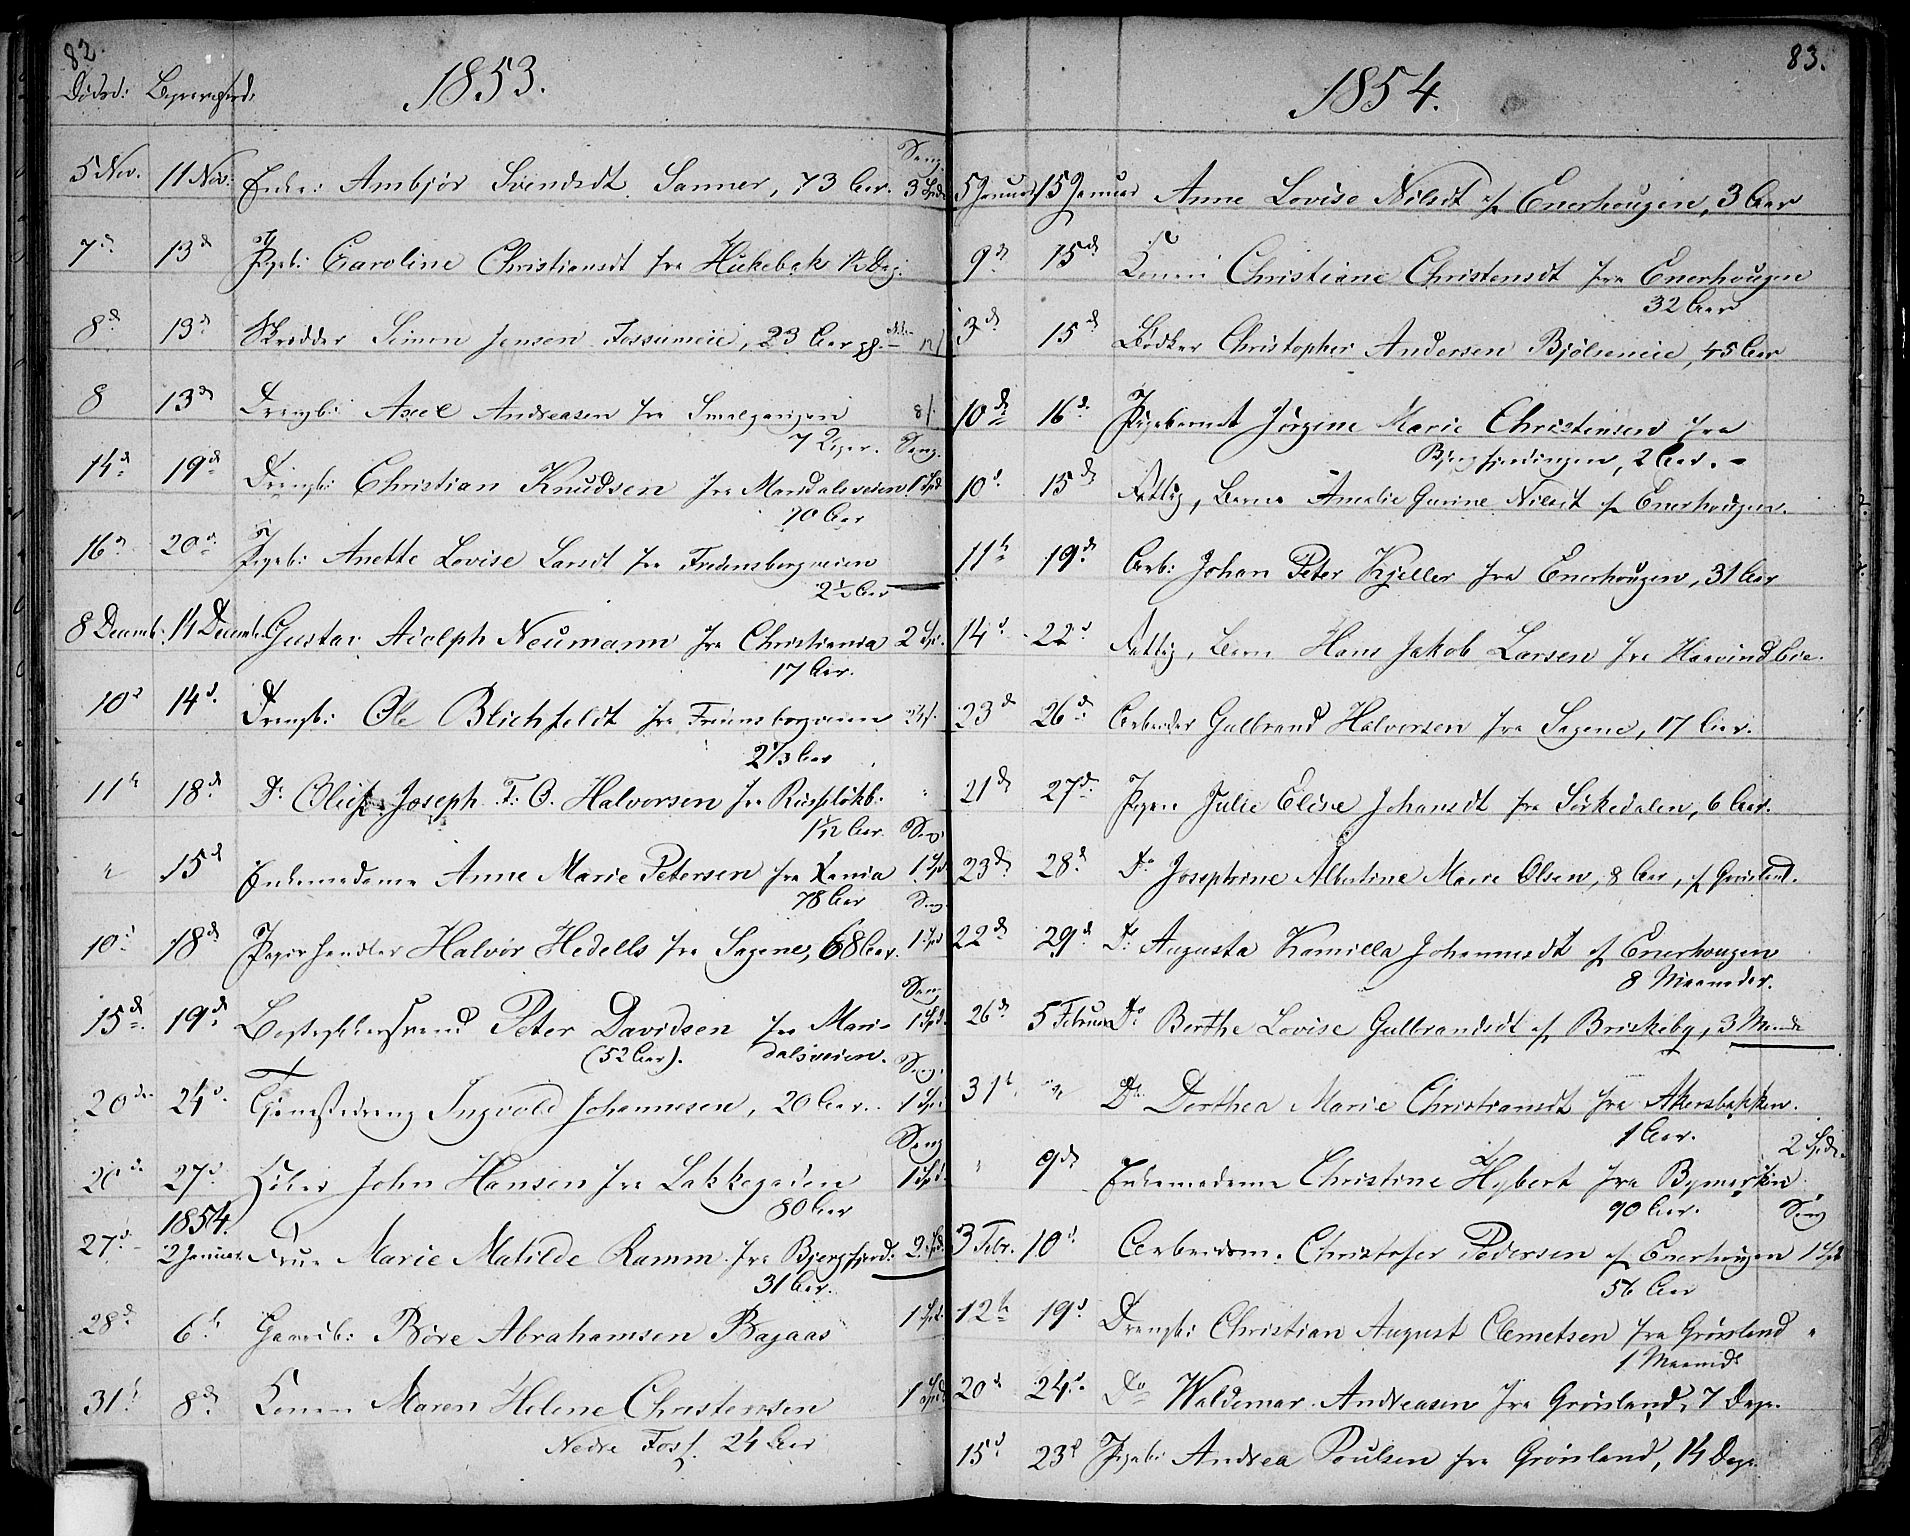 82.
Dødsd: Begravelsesd:
1853.
Seng
5 Nov. 11 Nov. Enke: Ambjør Svendsdt. Sanner, 73 Aar. 3 Spd
7d 13d Pigeb: Caroline Christiansdt fra Hukebak 12 Dag:
8d 13d Skrædder Simon Jensen Fossumeie, 23 Aar gl.
8 13d Drengb: Axel Andreasen fra Smalgangen 8/
7 Uger. Seng.
14d 19d Drengb: Christian Knudsen fra Maridalsveien 1 Spd
10 Aar
16d 20d Pigeb: Anette Lovise Larsdt fra Fredensborgveien
2½ Aar
8 Decemb. 14 Decemb. Gustav Adolph Neumann fra Christiania 2 Spd.
17 Aar.
10d 14d. Drengb: Ole Blichfeldt fra Fredensborgveien 24/.
2 1/3 Aar
11te 18d Do Joseph F: O. Halvorsen fra
1 1/12 Aar. Seng.
" 15d Enkemadame Anne Marie Petersen fra Xania 1 Spd
78 Aar Seng.
10d 18d Papirhandler Halvor Hedells fra Sagene, 68 Aar. 1 Spd
Seng
15d 19d Peter Davidsen fra Mari- 1 Spd.
(52 Aar). dalsveien. Seng.
20de 24d. Tjenestedreng Ingvold Johannesen, 20 Aar. 1 Spd.
Seng
20de 27d. John Hansen fra Lakkegaden 1 Spd.
1854. 80 Aar
27d. 2 Januar. Frue Marie Matilde Ramm fra Bjergfjerd: 2 Spd.
31 Aar.
28d 6te Gaardb: Børe Abrahamsen Bagaas 1 Spd.
31te 8d Konen Maren Helene Christensen 1 Spd
Nedre Foss. 24 Aar
83.
1854.
5 Januar 15 Januar Anne Lovise Nilsdt af Enerhougen, 3 Aar
9d 15d Konen Christiane Christensdt fra Enerhougen
32 Aar
3d 15d Bødker Christopher Andersen Bjølseneie, 45 Aar
10de 16d. Pigebarnet Jørgine Marie Christensen fra
Bjergfjerdingen, 2 Aar. -
10d 15d Fattig, Barn Amalie Gurine Nilsdt af Enerhougen.
11te 19d Arb: Johan Peter Kjeller fra Enerhougen, 31 Aar
14d. 22d Fattig, Barn Hans Jakob Larsen fra Haavindbie.
23d 26d Arbeider Gulbrand Halvorsen fra Sagene, 17 Aar.
21d 27d. Pigen Julie Elise Johansdt fra Sørkedalen, 6 Aar.
23d 28d Do Josephine Albertine Marie Olsen, 8 Aar, af Grønland.
22d 29d. Do Augusta Kamilla Johannesdt af Enerhougen
8 Maaneder.
26d 5 Februar Do Berthe Lovise Gulbrandsdt af Briskeby, 3 Maande
31te " Do Dorthea Marie Christiansdt fra Akersbakken.
1 Aar. 2 Spd.
" 9d Enkemadame Christine Hybert fra Bymarken
90 Aar. Seng
3 Febr. 10d. Arbeidsm. Christofer Pedersen af Enerhougen 1 Spd
56 Aar
12te 19d. Drengb: Christian August Clemetsen fra Grønland "
1 Maaned
20d 24d. Do Waldemar Andreasen fra Grønland, 7 Dage.
15d 23d Pigeb: Andrea Poulsen fra Grønland, 14 Dage